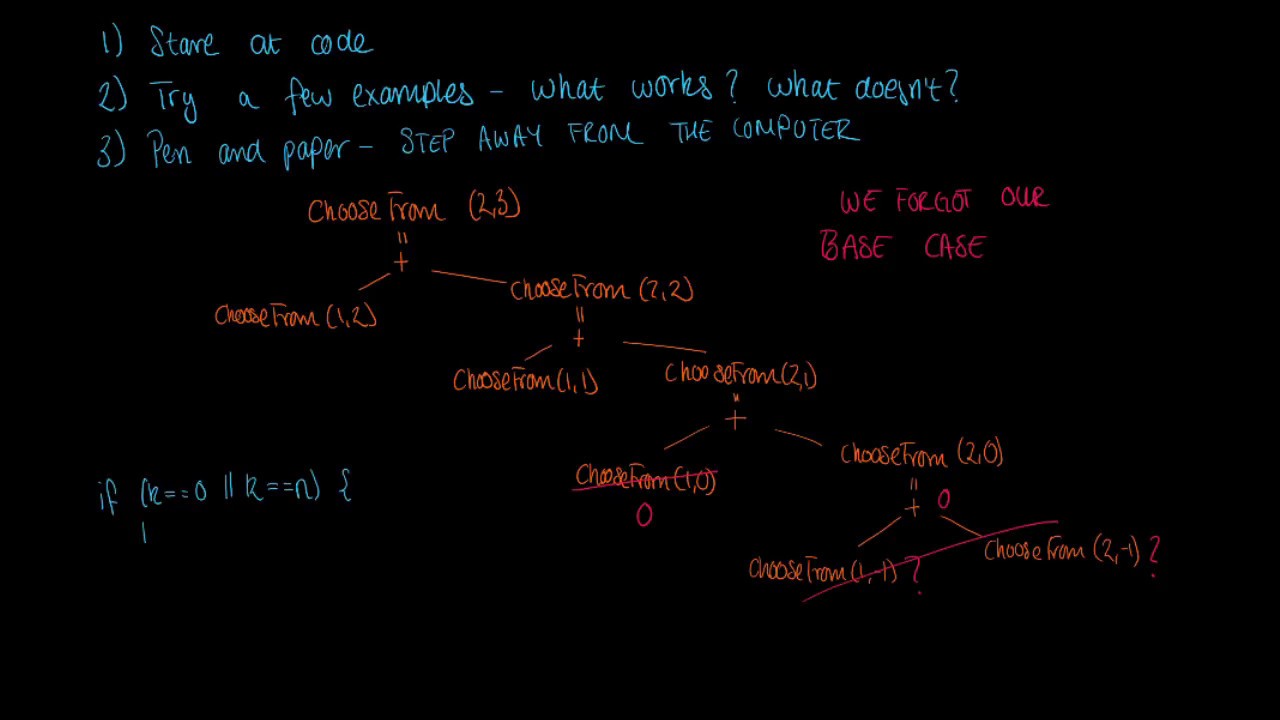 1) Stare at code
2) Try a few examples - what works? what doesn't?
3) Pen and paper - STEP AWAY FROM THE COMPUTER
ChooseFrom (2,3)
WE FORGOT OUR
BASE CASE
=
+
ChooseFrom (1,2)
ChooseFrom (2,2)
=
+
ChooseFrom (1,1)
ChooseFrom (2,1)
=
+
ChooseFrom (1,0)
0
ChooseFrom (2,0)
=
+ 0
ChooseFrom (1,-1) ?
ChooseFrom (2,-1) ?
if (k==0 || k==n) {